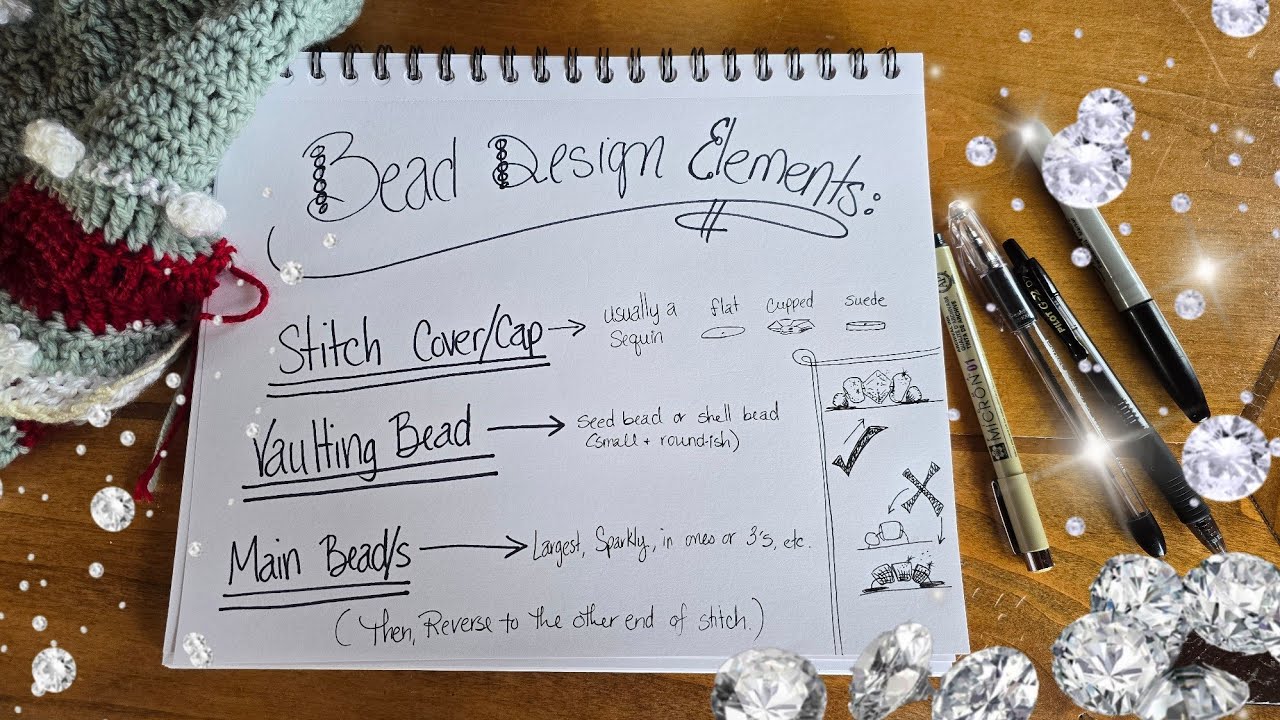 Bead Design Elements:
Stitch Cover/Cap
usually a
Sequin
flat
cupped
suede
Vaulting Bead
Seed bead or shell bead
(small + roundish)
Main Bead/s
Largest, Sparkly, in ones or 3's, etc.
(Then, Reverse to the other end of stitch.)
MICRON 01
PILOT G-2